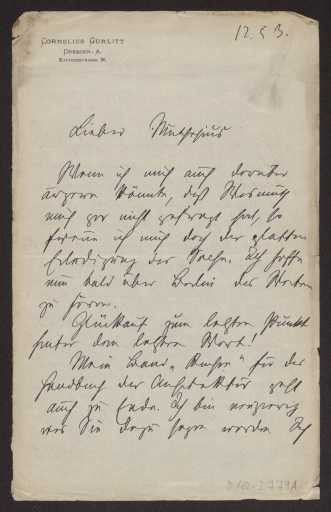 CORNELIUS GURLITT
DRESDEN-A.
12.5.3.
Lieber Muthesius
Wenn ich mich auch darüber
ärgern könnte, daß Wasmuth
mich gar nicht gefragt hat, so
freue ich mich doch der glatten
Erledigung der Sache. Ich hoffe
nun bald über Berlin des Weiteren
zu hören.
Glückauf zum letzten Punkt
hinter dem letzten Wort!
Mein Band „Kirchen" für das
Handbuch der Architektur geht
auch zu Ende. Ich bin neugierig
was Sie dazu sagen werden. Ich